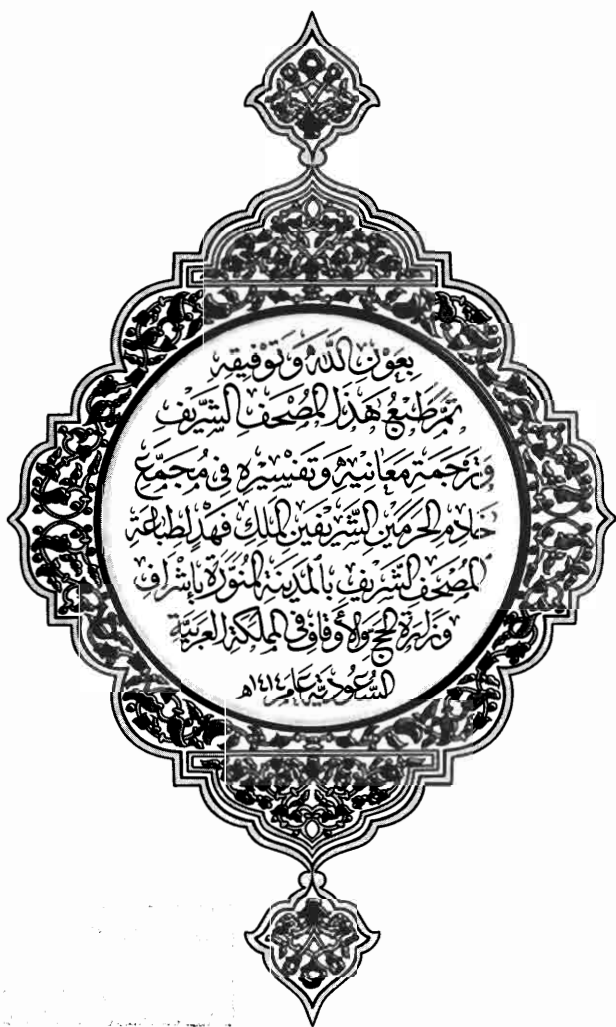 بعون الله وتوفيقه
تم طبع هذا المصحف الشريف
وترجمة معانيه وتفسيره في مجمع
خادم الحرمين الشريفين الملك فهد لطباعة
المصحف الشريف بالمدينة المنورة بإشراف
وزارة الحج والأوقاف في المملكة العربية
السعودية عام ١٤١٤هـ